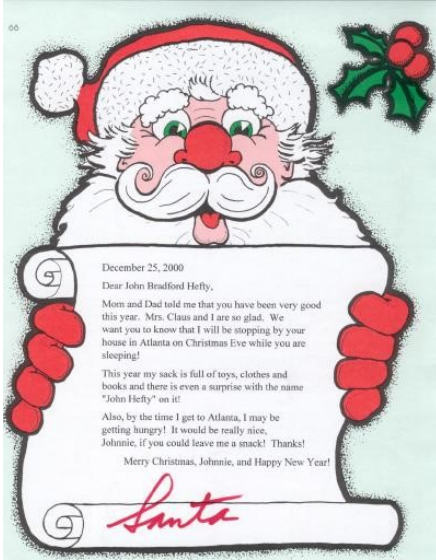 66
December 25, 2000
Dear John Bradford Hefty,
Mom and Dad told me that you have been very good
this year.  Mrs. Claus and I are so glad.  We
want you to know that I will be stopping by your
house in Atlanta on Christmas Eve while you are
sleeping!
This year my sack is full of toys, clothes and
books and there is even a surprise with the name
"John Hefty" on it!
Also, by the time I get to Atlanta, I may be
getting hungry!  It would be really nice,
Johnnie, if you could leave me a snack!  Thanks!
Merry Christmas, Johnnie, and Happy New Year!
Santa